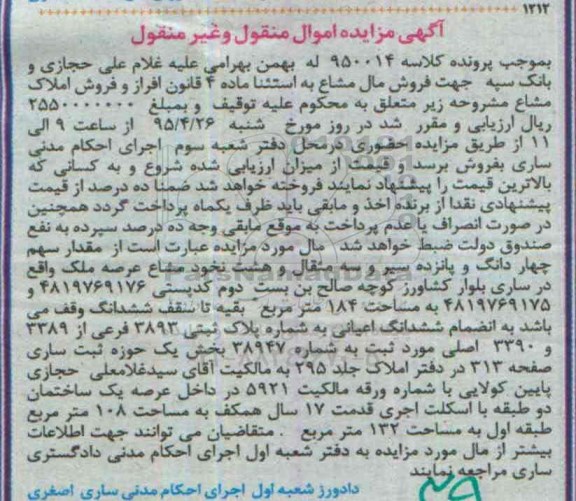 ۱۲۱۲
آگهی مزایده اموال منقول و غیر منقول
بموجب پرونده کلاسه ۹۵۰۰۱۴ له بهمن بهرامی علیه غلام علی حجازی و
بانک سپه جهت فروش مال مشاع به استثنا ماده ۴ قانون افراز و فروش املاک
مشاع مشروحه زیر متعلق به محکوم علیه توقیف و بمبلغ ۲۵۵۰۰۰۰۰۰۰
ریال ارزیابی و مقرر شد در روز مورخ شنبه ۹۵/۴/۲۶ از ساعت ۹ الی
۱۱ از طریق مزایده حضوری درمحل دفتر شعبه سوم اجرای احکام مدنی
ساری بفروش برسد و قیمت از میزان ارزیابی شده شروع و به کسانی که
بالاترین قیمت را پیشنهاد نمایند فروخته خواهد شد ضمنا ده درصد از قیمت
پیشنهادی نقدا از برنده اخذ و مابقی باید ظرف یکماه پرداخت گردد همچنین
در صورت انصراف یا عدم پرداخت به موقع مابقی وجه ده درصد سپرده به نفع
صندوق دولت ضبط خواهد شد مال مورد مزایده عبارت است از مقدار سهم
چهار دانگ و پانزده سیر و سه مثقال و هشت نخود مشاع عرصه ملک واقع
در ساری بلوار کشاورز کوچه صالح بن بست دوم کدپستی ۴۸۱۹۷۶۹۱۷۶ و
۴۸۱۹۷۶۹۱۷۵ به مساحت ۱۸۴ متر مربع بقیه تا سقف ششدانگ وقف می
باشد به انضمام ششدانگ اعیانی به شماره پلاک ثبتی ۳۸۹۳ فرعی از ۳۳۸۹
و ۳۳۹۰ اصلی مورد ثبت به شماره ۳۸۹۴۷ بخش یک حوزه ثبت ساری
صفحه ۳۱۳ در دفتر املاک جلد ۲۹۵ به مالکیت آقای سیدغلامعلی حجازی
پایین کولایی با شماره ورقه مالکیت ۵۹۲۱ در داخل عرصه یک ساختمان
دو طبقه با اسکلت اجری قدمت ۱۷ سال همکف به مساحت ۱۰۸ متر مربع
طبقه اول به مساحت ۱۳۲ متر مربع . متقاضیان می توانند جهت اطلاعات
بیشتر از مال مورد مزایده به دفتر شعبه اول اجرای احکام مدنی دادگستری
ساری مراجعه نمایند
دادورز شعبه اول اجرای احکام مدنی ساری اصغری